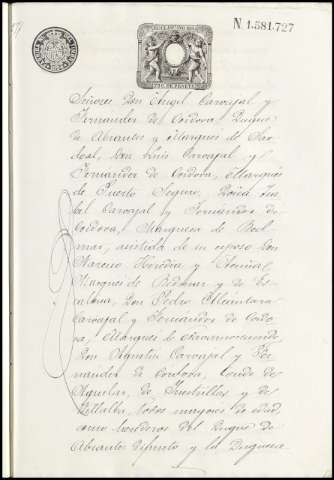 N. 1.581.727
Señores Don Angel Carvajal y
Fernandez de Cordova, Duque
de Abrantes y Marqués de Sar
doal, Don Luis Carvajal y
Fernandez de Cordova, Marqués
de Puerto Seguro, Doña Isa
bel Carvajal y Fernandez de
Cordova, Marquesa de Bed
mar, asistida de su esposo Don
Heredia y
Marqués de Bedmar y de Es
calona, Don Pedro Alcántara
Carvajal y Fernandez de Cordo
va, Marqués de Navamorcuende
Don Agustin Carvajal y Fer
nandez de Cordova, Conde de
Aguilar, de Inestrillas y de
Villalba, todos mayores de edad
como herederos del Duque de
Abrantes difunto y la Duquesa